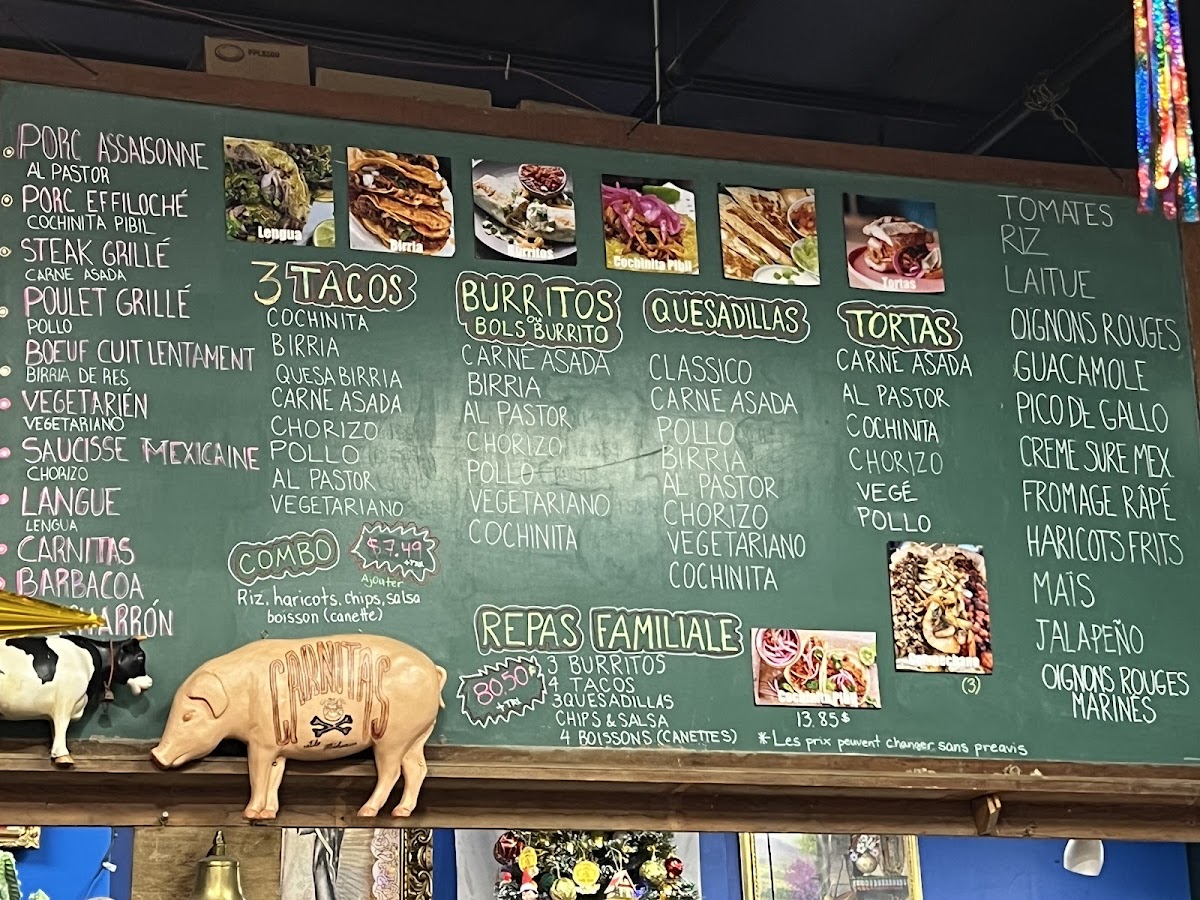 PORC ASSAISONNE
AL PASTOR
PORC EFFILOCHÉ
COCHINITA PIBIL
STEAK GRILLÉ
CARNE ASADA
POULET GRILLÉ
POLLO
BOEUF CUIT LENTAMENT
BIRRIA DE RES
VEGETARIÉN
VEGETARIANO
SAUCISSE MEXICAINE
CHORIZO
LANGUE
LENGUA
CARNITAS
BARBACOA
Lengua
Birria
Burritos
Cochinita Pibil
Tortas
3 TACOS
COCHINITA
BIRRIA
QUESABIRRIA
CARNE ASADA
CHORIZO
POLLO
AL PASTOR
VEGETARIANO
COMBO
$7.49
+TAX
Ajouter
Riz, haricots, chips, salsa
boisson (canette)
BURRITOS
OU
BOLS BURRITO
CARNE ASADA
BIRRIA
AL PASTOR
CHORIZO
POLLO
VEGETARIANO
COCHINITA
QUESADILLAS
CLASSICO
CARNE ASADA
POLLO
BIRRIA
AL PASTOR
CHORIZO
VEGETARIANO
COCHINITA
TORTAS
CARNE ASADA
AL PASTOR
COCHINITA
CHORIZO
VEGÉ
POLLO
(3)
REPAS FAMILIALE
80.50$
+TAX
3 BURRITOS
4 TACOS
3 QUESADILLAS
CHIPS & SALSA
4 BOISSONS (CANETTES)
13.85$
*Les prix peuvent changer sans preavis
TOMATES
RIZ
LAITUE
OIGNONS ROUGES
GUACAMOLE
PICO DE GALLO
CREME SURE MEX
FROMAGE RÂPÉ
HARICOTS FRITS
MAÏS
JALAPEÑO
OIGNONS ROUGES
MARINÉS
CARNITAS